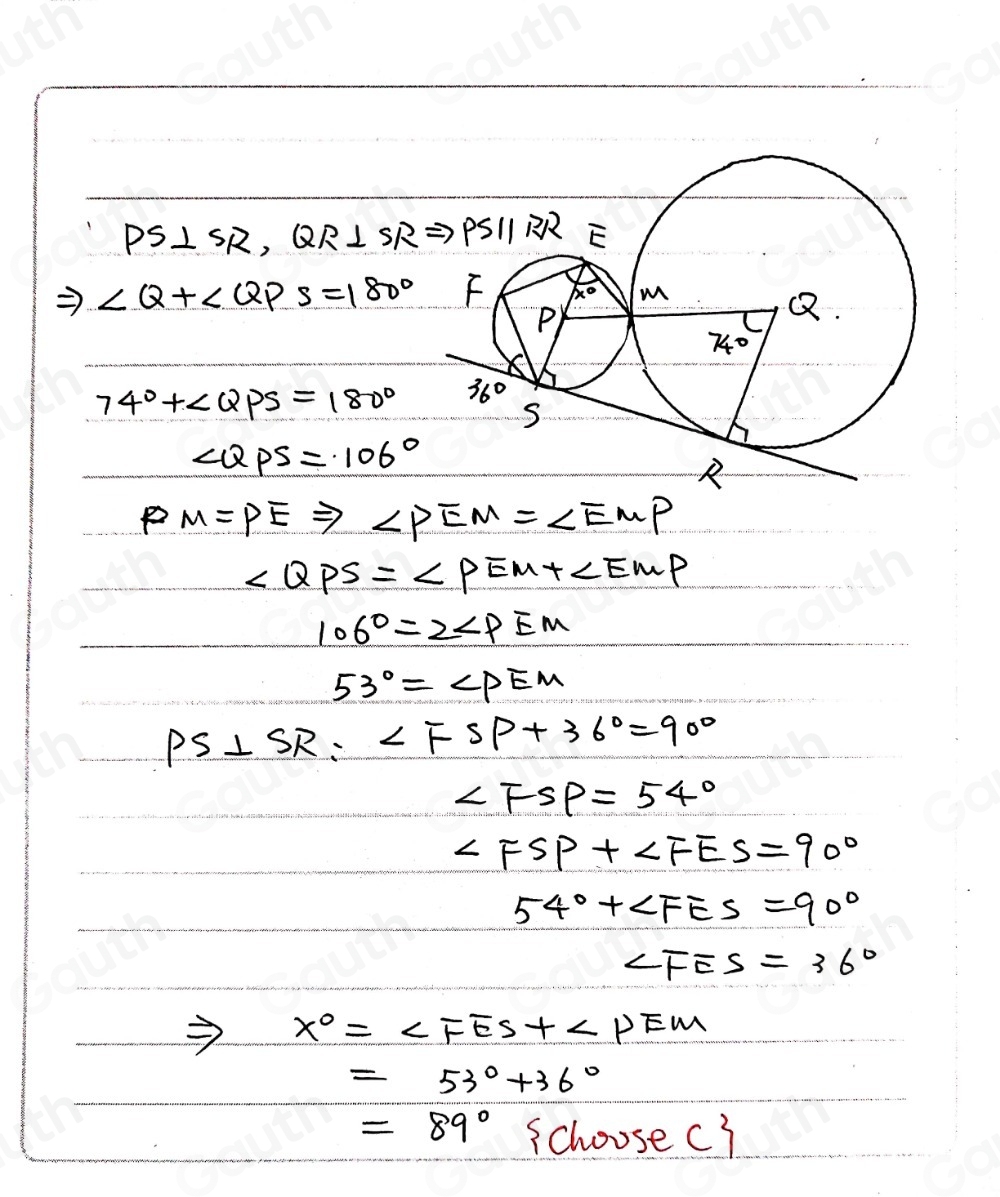 PS⊥SR, QR⊥SR⇒PS∥RR
⇒∠Q+∠QPS=180°
E
F
x°
M
P
Q.
74°
36°
S
R
74°+∠QPS=180°
∠QPS=·106°
PM=PE⇒∠PEM=∠EMP
∠QPS=∠PEM+∠EMP
106°=2∠PEM
53°=∠PEM
PS⊥SR: ∠FSP+36°=90°
∠FSP=54°
∠FSP+∠FES=90°
54°+∠FES=90°
∠FES=36°
⇒ x°=∠FES+∠PEM
= 53°+36°
= 89° {choose C}
Gauth